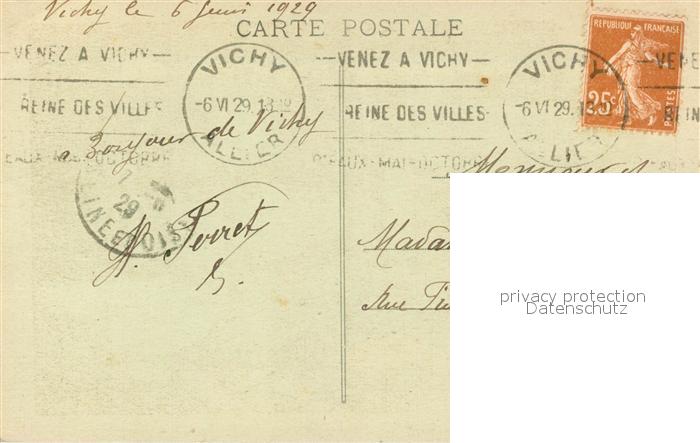 Vichy le 6 Juin 1929
CARTE POSTALE
REPUBLIQUE FRANÇAISE
25c
POSTES
—VENEZ A VICHY—
REINE DES VILLES
D'EAUX-MAI-OCTOBRE
VICHY
-6 VI 29. 13
ALLIER
—VENEZ A VICHY—
REINE DES VILLES
D'EAUX-MAI-OCTOBRE
VICHY
-6 VI 29. 13
ALLIER
—VENEZ
REIN
Bonjour de Vichy
29
Perret
Monsieur et
Mada
Rue
privacy protection
Datenschutz